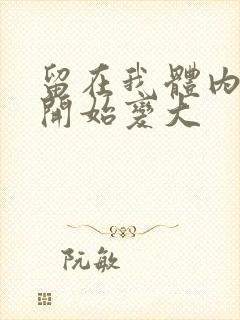 留在我體內
開始變大
阮敏